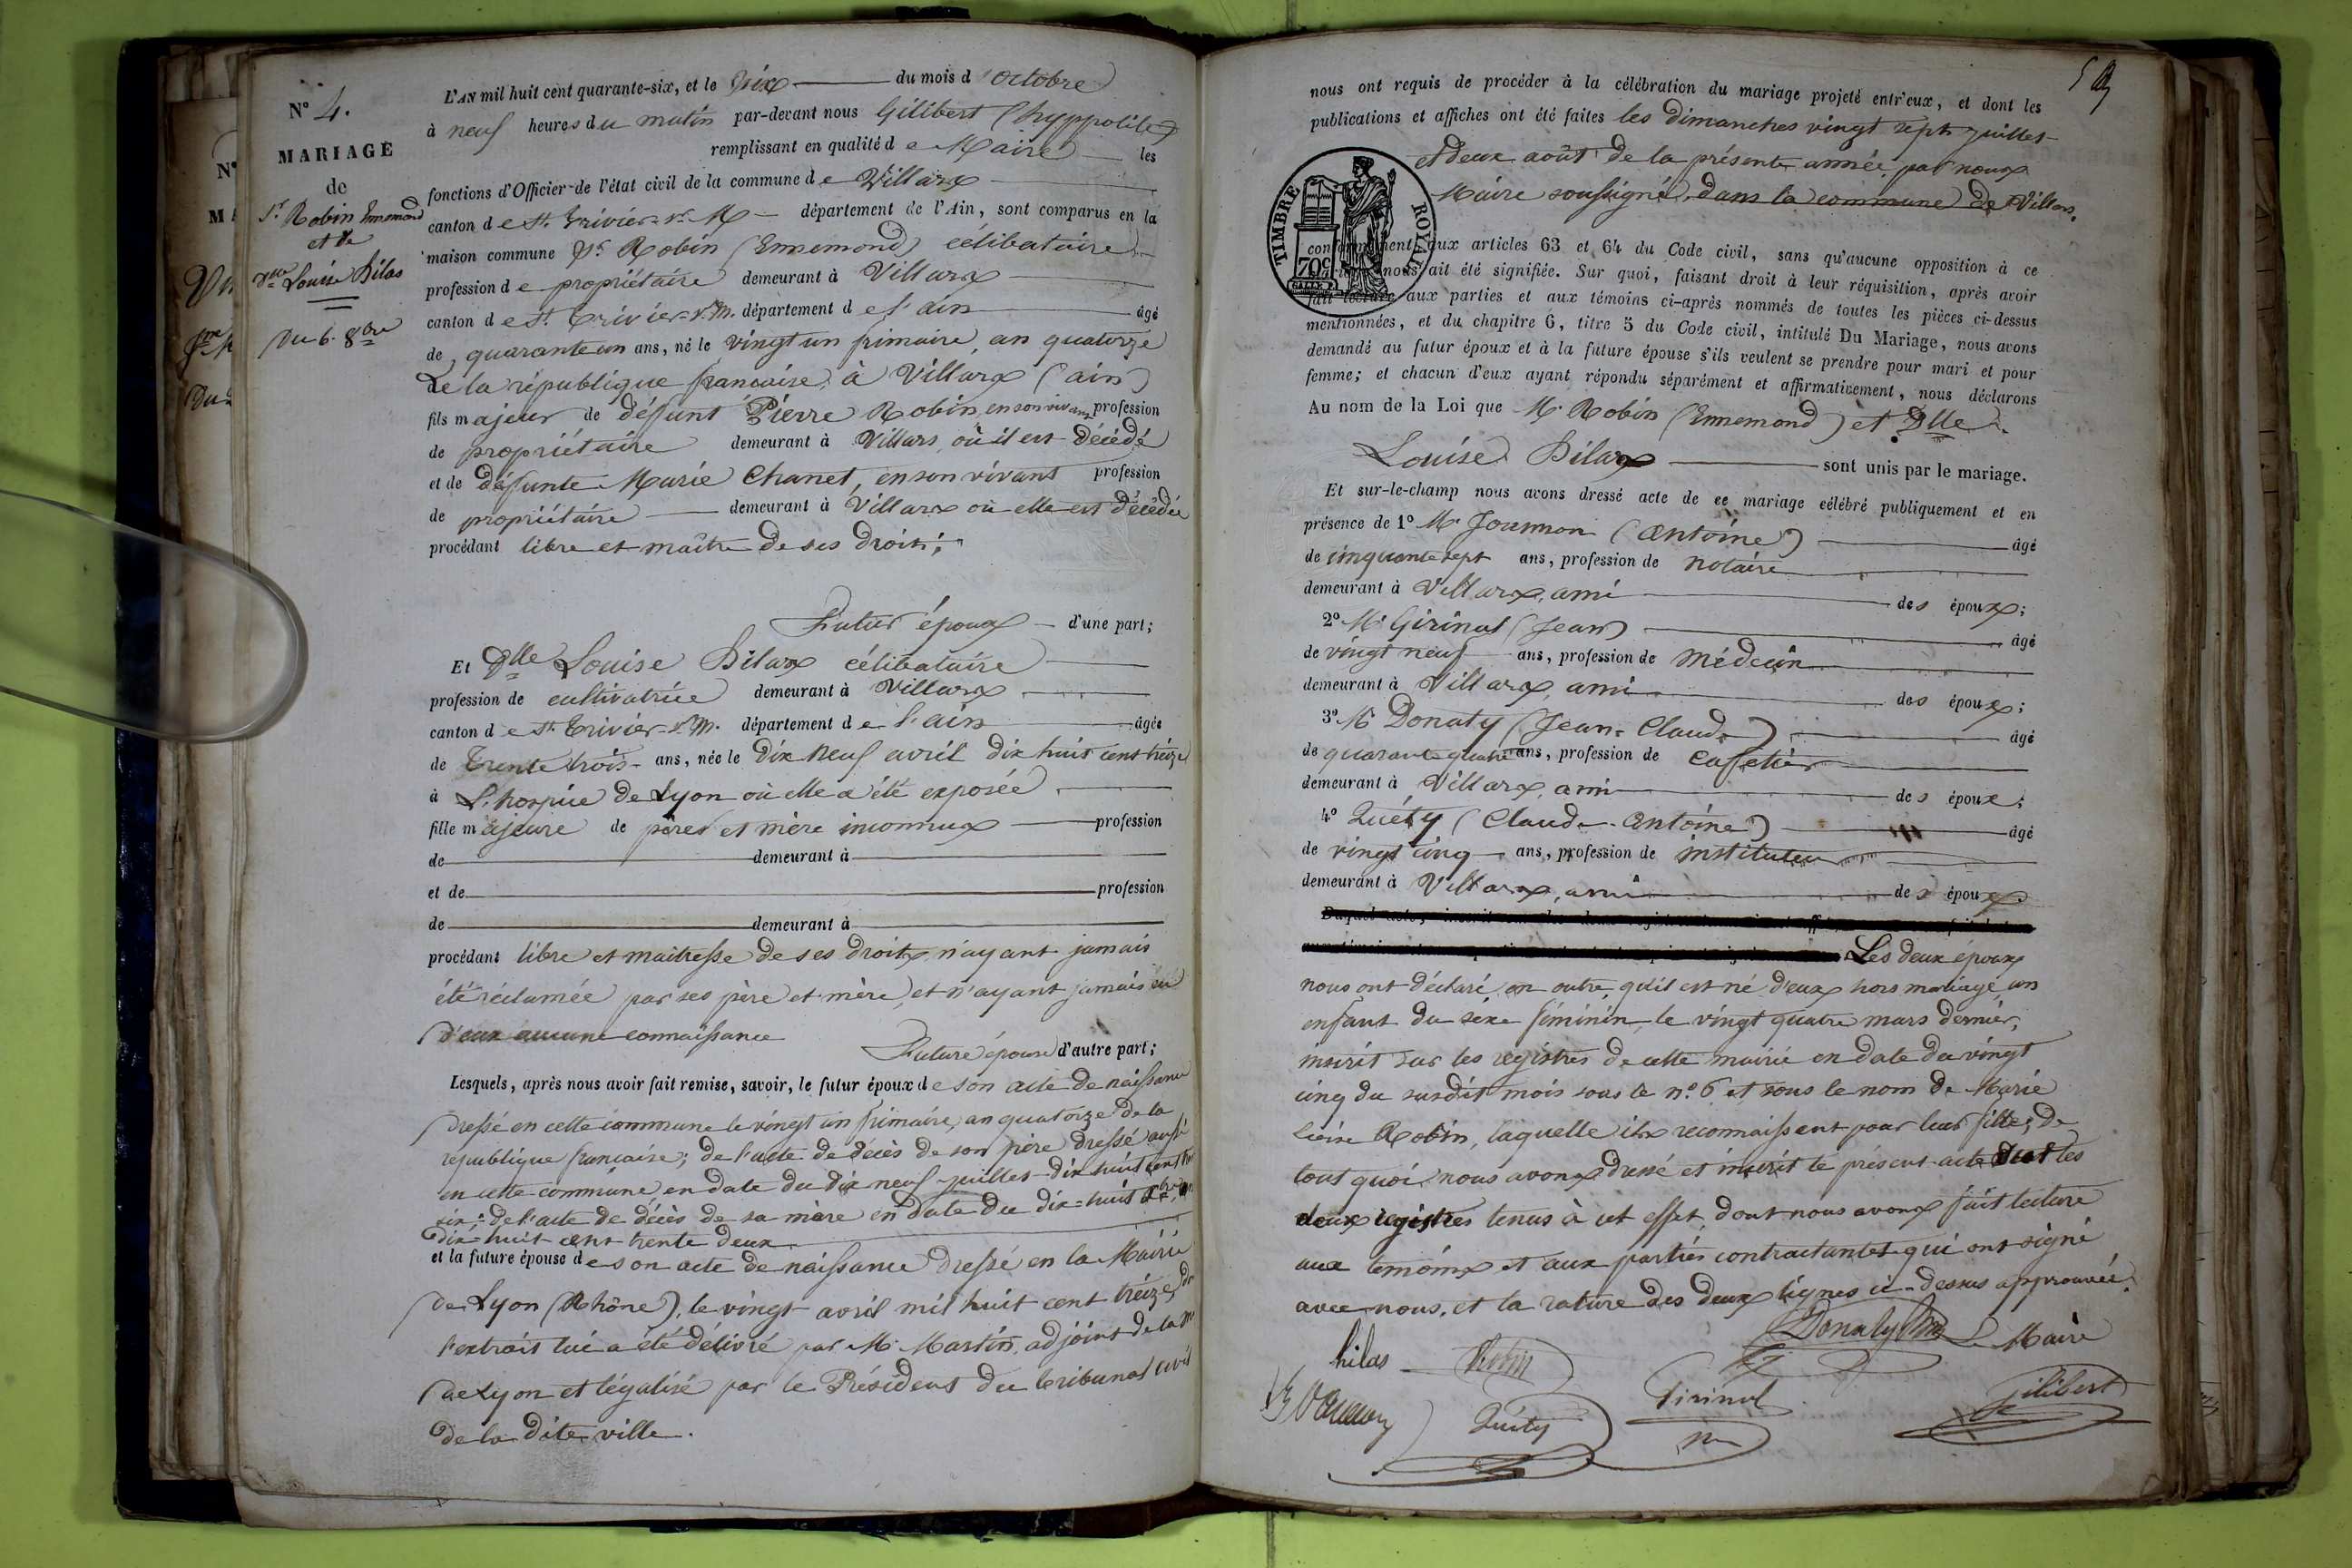 N° 4.
MARIAGE
de
Sr Robin Ennemond
et de
Dlle Louise Hilas
Du 6. 8bre
L'AN mil huit cent quarante-six, et le six du mois d'octobre
à neuf heures du matin par-devant nous Gilibert (hyppolite)
remplissant en qualité de Maire les
fonctions d'Officier de l'état civil de la commune de Villars
canton de St. Trivier-s-M département de l'Ain, sont comparus en la
maison commune Sr. Robin (Ennemond) célibataire
profession de propriétaire demeurant à Villars
canton de St. Trivier-s.M. département de l'ain âgé
de quarante un ans, né le vingt un frimaire, an quatorze
de la république française, à Villars (ain)
fils majeur de défunt Pierre Robin, en son vivant profession
de propriétaire demeurant à Villars, où il est décédé
et de défunte Marie Chanet, en son vivant profession
de propriétaire demeurant à Villars où elle est décédée
procédant libre et maître de ses droits;
Futur époux d'une part;
Et Dlle Louise Hilas célibataire
profession de cultivatrice demeurant à Villars
canton de St. Trivier-s.M. département de l'ain âgée
de trente trois ans, née le dix neuf avril dix huit cent treize
à L'hospice de Lyon où elle a été exposée
fille majeure de père et mère inconnus profession
de demeurant à
et de profession
de demeurant à
procédant libre et maîtresse de ses droits, n'ayant jamais
été réclamée par ses père et mère, et n'ayant jamais eu
d'eux aucune connaissance
Future épouse d'autre part;
Lesquels, après nous avoir fait remise, savoir, le futur époux de son acte de naissance
dressé en cette commune le vingt un frimaire, an quatorze de la
république française; de l'acte de décès de son père dressé aussi
en cette commune, en date du dix neuf juillet dix huit cent
six; de l'acte de décès de sa mère en date du dix-huit
dix huit cent trente deux
et la future épouse de son acte de naissance dressé en la Mairie
de Lyon (Rhône), le vingt avril mil huit cent treize, dont
l'extrait lui a été délivré par Mr. Martin, adjoint de la
de Lyon et légalisé par le Président du tribunal civil
de la dite ville.
nous ont requis de procéder à la célébration du mariage projeté entr'eux, et dont les
publications et affiches ont été faites les dimanches vingt sept juillet
et deux août de la présente année, par nous
Maire soussigné, dans la commune de Villars,
TIMBRE ROYAL
70c
conformément aux articles 63 et 64 du Code civil, sans qu'aucune opposition à ce
nous ait été signifiée. Sur quoi, faisant droit à leur réquisition, après avoir
fait lecture aux parties et aux témoins ci-après nommés de toutes les pièces ci-dessus
mentionnées, et du chapitre 6, titre 5 du Code civil, intitulé Du Mariage, nous avons
demandé au futur époux et à la future épouse s'ils veulent se prendre pour mari et pour
femme; et chacun d'eux ayant répondu séparément et affirmativement, nous déclarons
Au nom de la Loi que Mr. Robin (Ennemond) et Dlle.
Louise Hilas sont unis par le mariage.
Et sur-le-champ nous avons dressé acte de ce mariage célébré publiquement et en
présence de 1° Mr (Antoine) âgé
de cinquante sept ans, profession de notaire
demeurant à Villars, ami des époux;
2° Mr Girinat (Jean) âgé
de vingt neuf ans, profession de médecin
demeurant à Villars, ami des époux;
3° Mr Donaty (Jean-Claude) âgé
de quarante quatre ans, profession de cafetier
demeurant à Villars, ami des époux;
4° Quéty (Claude-Antoine) âgé
de vingt cinq ans, profession de instituteur
demeurant à Villars, ami des époux.
Les deux époux
nous ont déclaré, en outre, qu'il est né d'eux hors mariage, un
enfant du sexe féminin, le vingt quatre mars dernier,
inscrit sur les registres de cette mairie en date du vingt
cinq du susdit mois sous le n° 6 et sous le nom de Marie
Robin, laquelle ils reconnaissent pour leur fille; de
tout quoi nous avons dressé et inscrit le présent acte sur les
deux registres tenus à cet effet, dont nous avons fait lecture
aux témoins et aux parties contractantes qui ont signé
avec nous, et la rature des deux lignes ci-dessus approuvée.
hilas Robin Donaty Le Maire
Quéty Girinat Gilibert